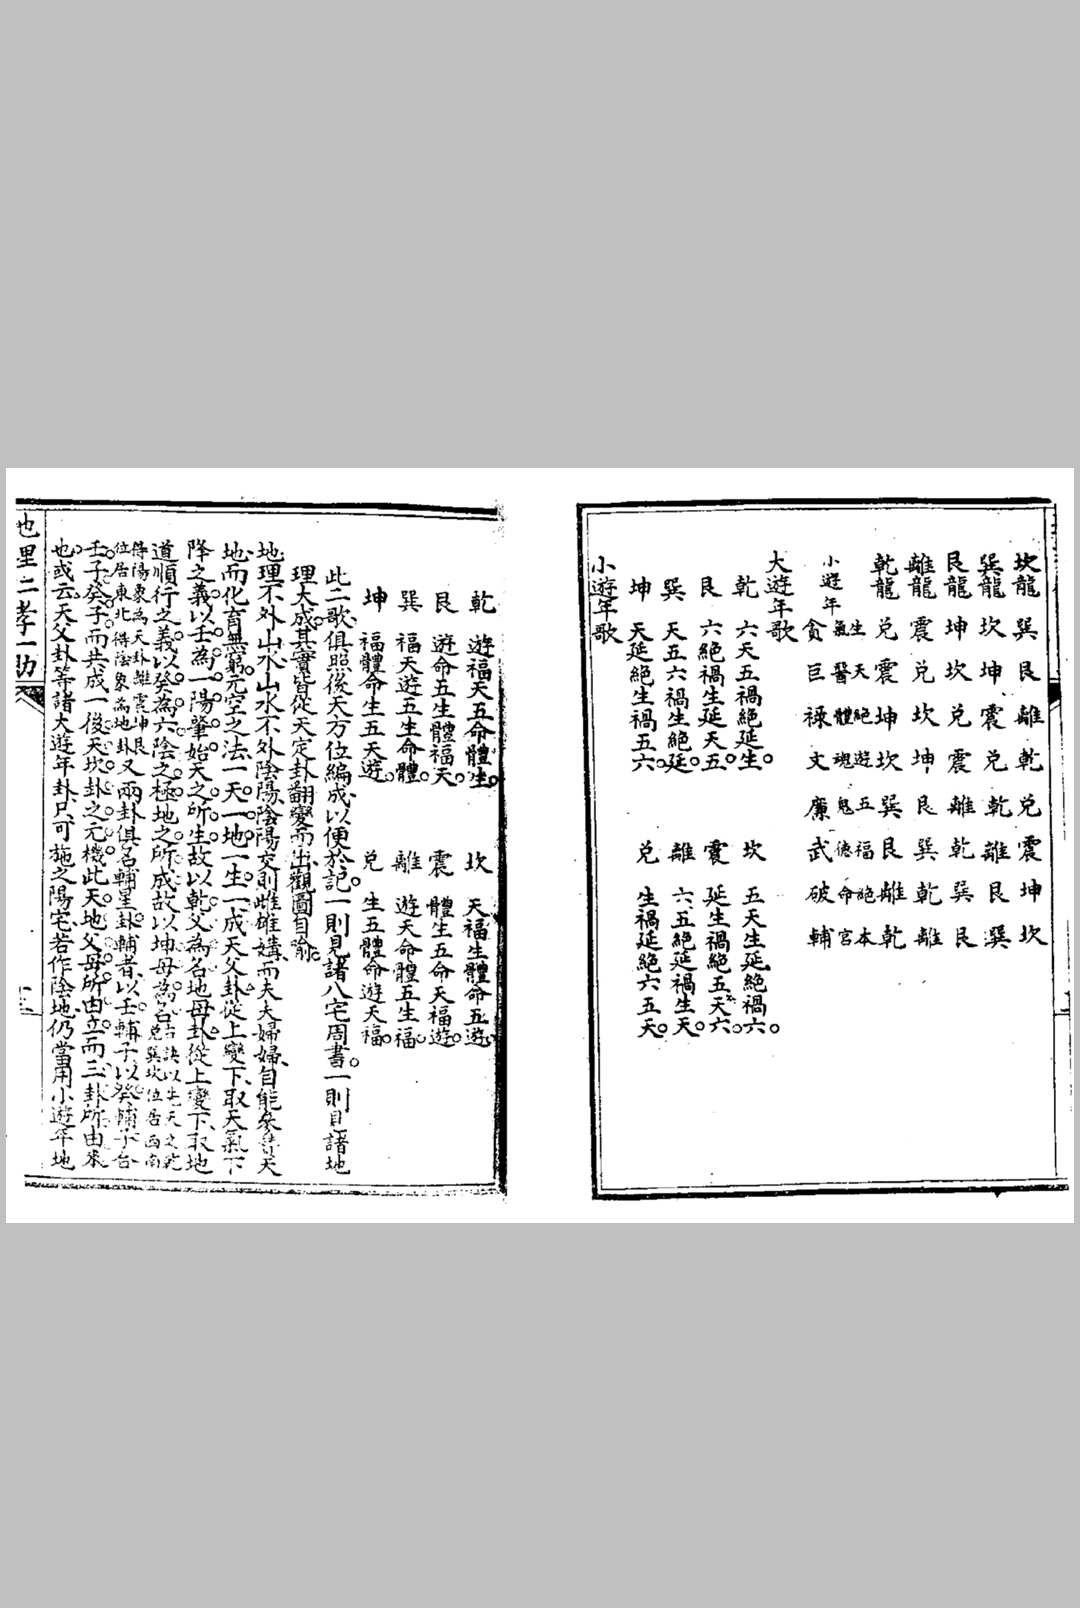 坎龍 巽艮離乾兌震坤坎
巽龍 坎坤震兌乾離艮巽
艮龍 坤坎兌震離乾巽艮
離龍 震兌坎坤艮巽乾離
乾龍 兌震坤坎巽艮離乾
小遊年 生氣 天醫 絕體 遊魂 五鬼 福德 絕命 本宮
貪巨祿文廉武破輔
大遊年歌
乾 六天五禍絕延生 坎 五天生延絕禍六
艮 六絕禍生延天五 震 延生禍絕五天六
巽 天五六禍生絕延 離 六五絕延禍生天
坤 天延絕生禍五六 兌 生禍延絕六五天
小遊年歌
乾 遊福天五命體生 坎 天福生體命五遊
艮 遊命五生體福天 震 體生五命天福遊
巽 福天遊五生命體 離 遊天命體五生福
坤 福體命生五天遊 兌 生五體命遊天福
此二歌俱照後天方位編成以便於記一則見諸八宅周書一則見諸地
理大成其實皆從天定卦翻變而出觀圖自喻
地理不外山水山水不外陰陽陰陽交則雌雄媾而夫夫婦婦自能參贊天
地而化育無窮元空之法一天一地一生一成天父卦從上變下取天氣下
降之義以壬為一陽肇始天之所生故以乾父為名地母卦從上變下取地
道順行之義以癸為六陰之極地之所成故以坤母為名古訣以先天之乾
兌巽坎位居西南得陽象為天卦離震坤艮
位居東北得陰象為地卦又兩卦俱名輔星卦輔者以壬輔子以癸輔子合
壬子癸子而共成一後天坎卦之元機此天地父母所由立而二卦所由來
也或云天父卦等諸大遊年卦只可施之陽宅若作陰地仍當用小遊年地
地里二孝一助